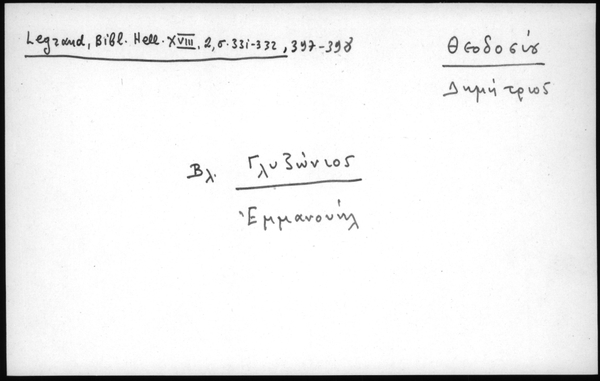 Legrand, Bibl. Hell. XVIII, 2, σ. 331-332, 397-398
Θεοδοσίου
Δημήτριος
Βλ. Γλυζώνιος
Ἐμμανουήλ